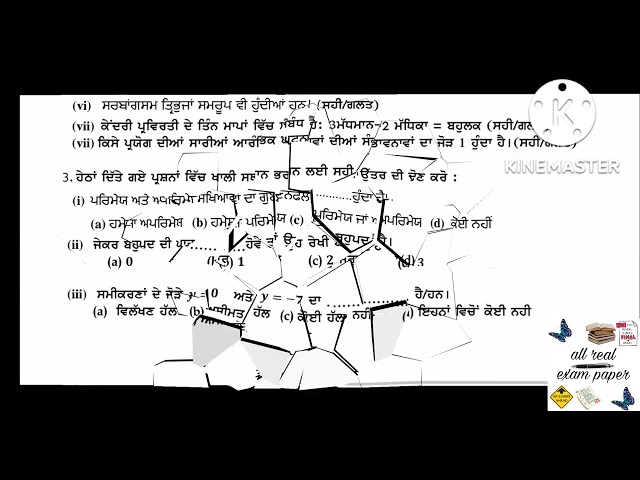 (vi) ਸਰਬਾਂਗਸਮ ਤ੍ਰਿਭੁਜਾਂ ਸਮਰੂਪ ਵੀ ਹੁੰਦੀਆਂ ਹਨ। (ਸਹੀ/ਗਲਤ)
(vii) ਕੇਂਦਰੀ ਪ੍ਰਵਿਰਤੀ ਦੇ ਤਿੰਨ ਮਾਪਾਂ ਵਿੱਚ ਸੰਬੰਧ ਹੈ: 3ਮੱਧਮਾਨ-2 ਮੱਧਿਕਾ = ਬਹੁਲਕ (ਸਹੀ/
(vii) ਕਿਸੇ ਪ੍ਰਯੋਗ ਦੀਆਂ ਸਾਰੀਆਂ ਆਰੰਭਿਕ ਘਟਨਾਵਾਂ ਦੀਆਂ ਸੰਭਾਵਨਾਵਾਂ ਦਾ ਜੋੜ 1 ਹੁੰਦਾ ਹੈ। (ਸਹੀ/ਗਲਤ)
K
KINEMASTER
3. ਹੇਠਾਂ ਦਿੱਤੇ ਗਏ ਪ੍ਰਸ਼ਨਾਂ ਵਿੱਚ ਖਾਲੀ ਸਥਾਨ ਭਰਨ ਲਈ ਸਹੀ ਉੱਤਰ ਦੀ ਚੋਣ ਕਰੋ :
(i) ਪਰਿਮੇਯ ਅਤੇ ਅਪਰਿਮੇਯ ਸੰਖਿਆਵਾਂ ਦਾ ਗੁਣਨਫਲ ............ ਹੁੰਦਾ ਹੈ।
(a) ਹਮੇਸ਼ਾ ਅਪਰਿਮੇਯ (b) ਹਮੇਸ਼ਾ ਪਰਿਮੇਯ (c) ਪਰਿਮੇਯ ਜਾਂ ਅਪਰਿਮੇਯ (d) ਕੋਈ ਨਹੀਂ
(ii) ਜੇਕਰ ਬਹੁਪਦ ਦੀ ............ ਹੋਵੇ ਤਾਂ ਉਹ ਰੇਖੀ ਬਹੁਪਦ ਹੈ।
(a) 0 (b) 1 (c) 2 (d) 3
(iii) ਸਮੀਕਰਣਾਂ ਦੇ ਜੋੜੇ y = 0 ਅਤੇ y = -7 ਦਾ .................. ਹੈ/ਹਨ।
(a) ਵਿਲੱਖਣ ਹੱਲ (b) ਅਸੀਮਤ ਹੱਲ (c) ਕੋਈ ਹੱਲ ਨਹੀਂ (d) ਇਹਨਾਂ ਵਿਚੋਂ ਕੋਈ ਨਹੀ
all real
exam paper